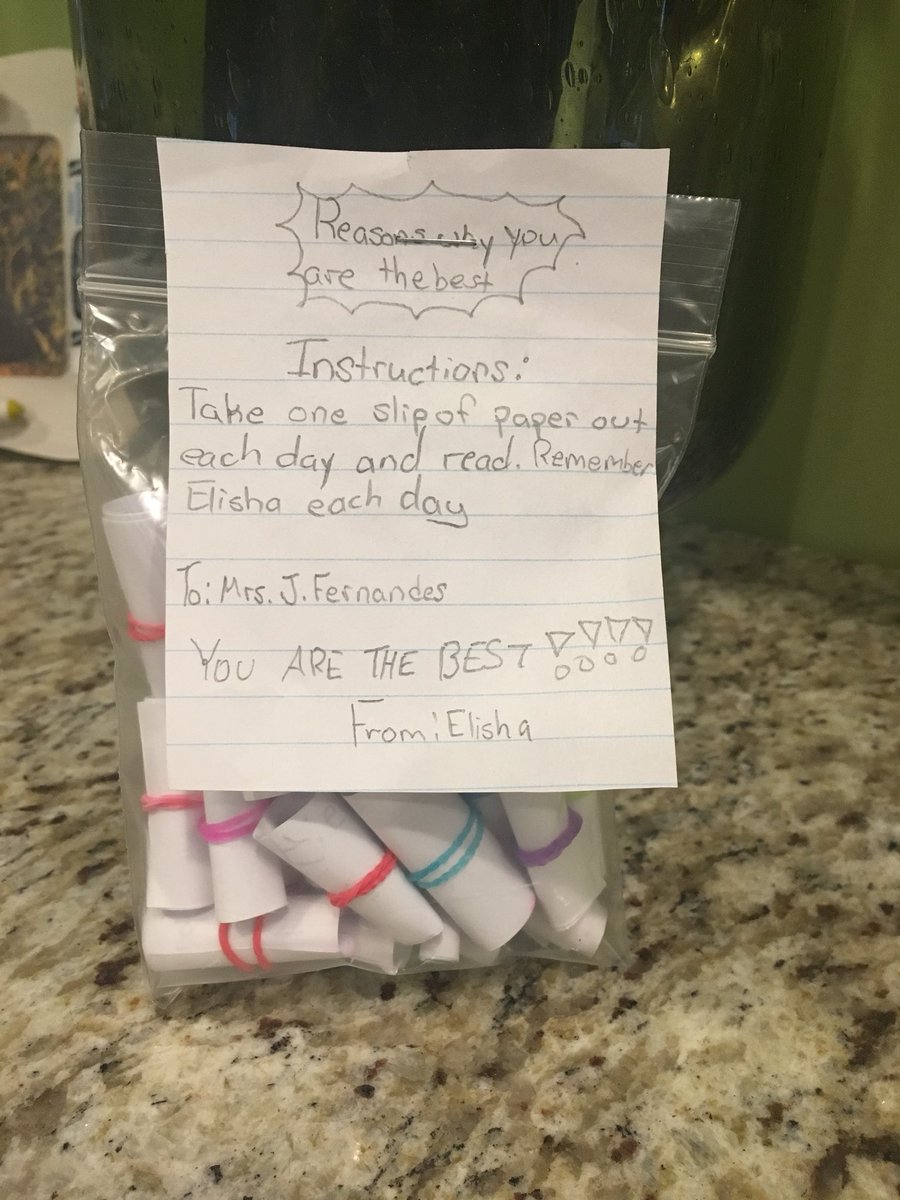 Reasons why you
are the best
Instructions:
Take one slip of paper out
each day and read. Remember
Elisha each day
To: Mrs. J. Fernandes
YOU ARE THE BEST !!!!
From: Elisha